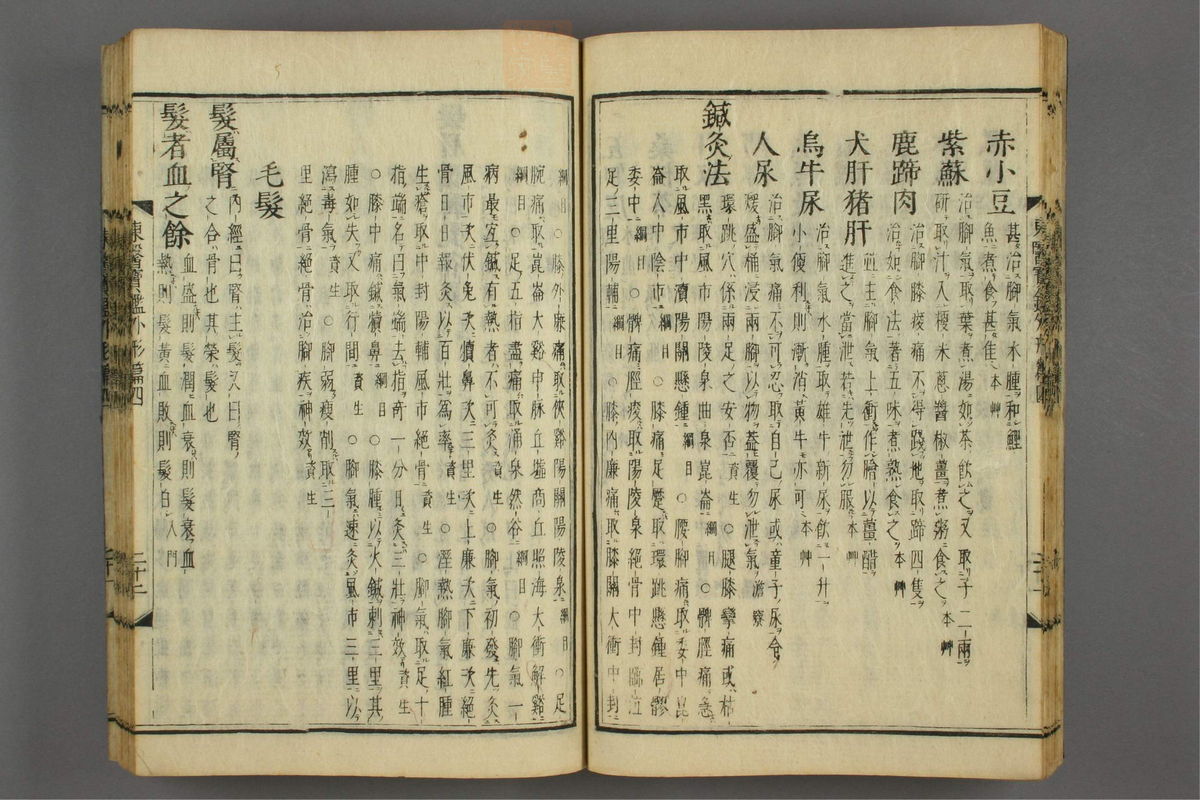 赤小豆 甚治腳氣水腫和鯉
魚煮食甚佳 本艸
紫蘇 治腳氣取葉煮湯如茶飲之又取子二兩
研取汁入粳米蔥醬椒薑煮粥食之 本艸
鹿蹄肉 治腳膝痠痛不得踐地取蹄四隻
治如食法著五味煮熟食之 本艸
犬肝猪肝 並主腳氣上衝作膾以薑醋
進之當泄若先泄勿服 本艸
烏牛尿 治腳氣水腫取雄牛新尿飲一升
小便利則漸消黃牛亦可 本艸
人尿 治腳氣痛不可忍取自己尿或童子尿令
煖盛桶浸兩腳以物蓋覆勿泄氣 澹寮
鍼灸法 環跳穴係兩足之安否 資生 ○腿膝攣痛或枯
黑取風市陽陵泉曲泉崑崙 綱目 ○髀脛痛急
取風市中瀆陽關懸鍾 綱目 ○腰腳痛取委中崑
崙人中陰市 綱目 ○膝痛足蹷取環跳懸鍾居髎
委中 綱目 ○髀痛脛痠取陽陵泉絕骨中封臨泣
足三里陽輔 綱目 ○膝內廉痛取膝關大衝中封
綱目 ○膝外廉痛取俠谿陽關陽陵泉 綱目 ○足
腕痛取崑崙大谿申脉丘墟商丘照海大衝解谿
綱目 ○足五指盡痛取涌泉然谷 綱目 ○腳氣一
病最宜鍼有熱者不可灸 資生 ○腳氣初發先灸
風市次伏兔次犢鼻次三里次上廉次下廉次絕
骨日日報灸以百壯為率 資生 ○溼熱腳氣紅腫
生瘡取中封陽輔風市絕骨 資生 ○腳氣取足十
指端名曰氣端去指奇一分日灸三壯神效 資生
○膝中痛鍼犢鼻 綱目 ○膝腫以火鍼刺三里其
腫如失又取行間 資生 ○腳氣速灸風市三里以
瀉毒氣 資生 ○腳弱瘦削取三
里絕骨絕骨治腳疾神效 資生
毛髮
髮屬腎 內經曰腎主髮又曰腎
之合骨也其榮髮也
髮者血之餘 血盛則髮潤血衰則髮衰血
熱則髮黃血敗則髮白 入門
東醫寶鑑外形篇四
二十二